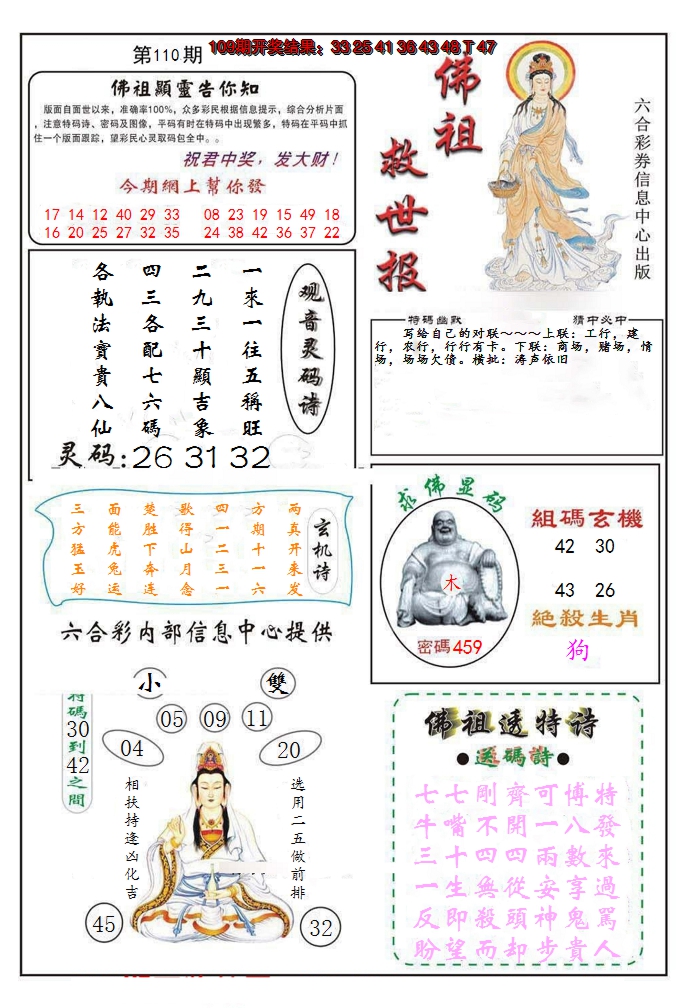 第110期
109期开奖结果：33 25 41 36 43 48 T 47
佛祖顯靈告你知
版面自面世以来，准确率100%，众多彩民根据信息提示，综合分析片面
，注意特码诗、密码及图像，平码有时在特码中出现繁多，特码在平码中抓
住一个版面跟踪，望彩民心灵取码包全中。。
祝君中奖，发大财！
今期網上幫你發
17 14 12 40 29 33 08 23 19 15 49 18
16 20 25 27 32 35 24 38 42 36 37 22
佛祖
救世报
六合彩券信息中心出版
观音灵码诗
一來一往五稱旺
二九三十顯吉象
四三各配七六碼
各執法寶貴八仙
灵码:26 31 32
特碼幽默
猜中必中
写给自己的对联～～～上联：工行，建
行，农行，行行有卡。下联：商场，赌场，情
场，场场欠债。横批：涛声依旧
玄机诗
两真开来发
方期十一六
四一二三一
歌得山月念
楚胜下奔连
面能虎兔运
三方猛玉好
六合彩内部信息中心提供
求佛显码
木
密碼459
組碼玄機
42 30
43 26
絕殺生肖
狗
小
雙
特碼30到42之間
05 09 11
04
20
相扶持逢凶化吉
选用二五做前排
45
32
佛祖透特诗
●送碼詩●
七七剛齊可博特
牛嘴不開一八發
三十四四兩數來
一生無從安享過
反即殺頭神鬼罵
盼望而却步貴人